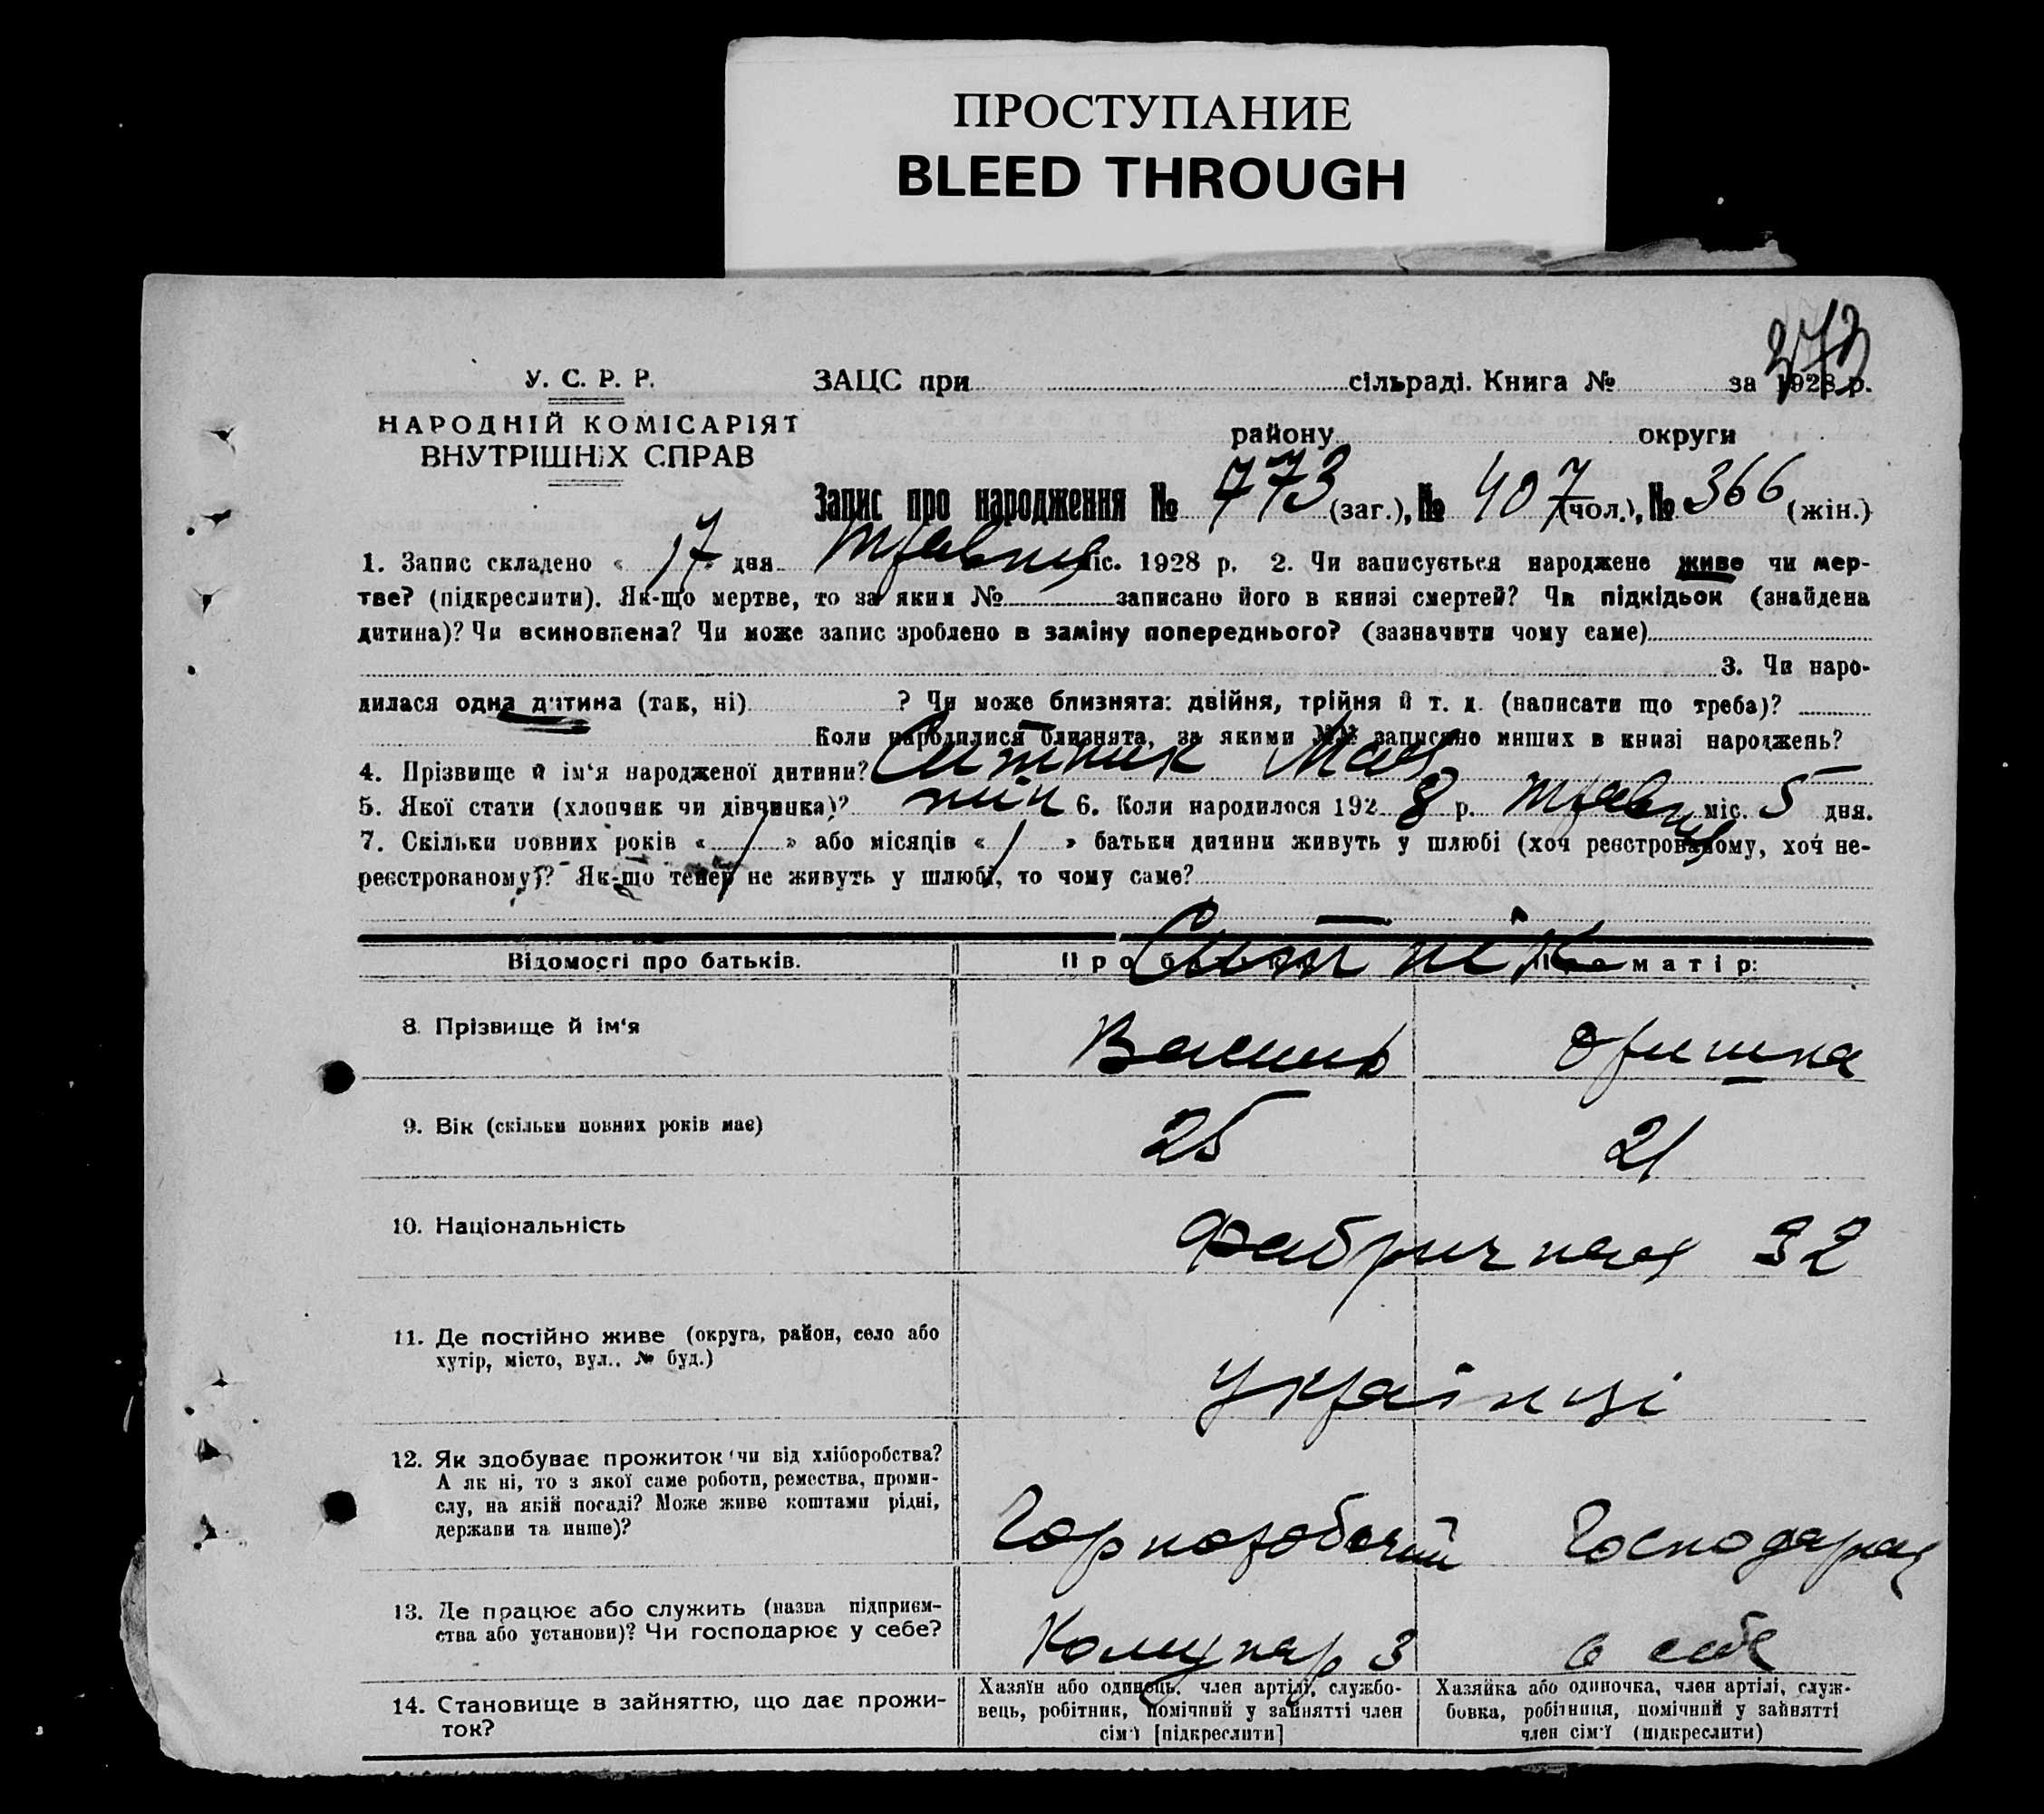 ПРОСТУПАНИЕ
BLEED THROUGH
273
У. С. Р. Р.
НАРОДНІЙ КОМІСАРІЯТ
ВНУТРІШНІХ СПРАВ
ЗАЦС при сільраді. Книга № за 1928 р.
району округи
Запис про народження № 773 (заг.), № 407 (чол.), № 366 (жін.)
1. Запис складено « 17 » дня травня міс. 1928 р. 2. Чи записується народжене живе чи мер-
тве? (підкреслити). Як-що мертве, то за яким № записано його в книзі смертей? Чи підкідьок (знайдена
дитина)? Чи всиновлена? Чи може запис зроблено в заміну попереднього? (зазначити чому саме)
3. Чи наро-
дилася одна дитина (так, ні) ? Чи може близнята: двійня, трійня й т. д. (написати що треба)?
Коли народилися близнята, за якими №№ записано инших в книзі народжень?
4. Прізвище й ім'я народженої дитини? Ситник
5. Якої стати (хлопчик чи дівчинка)? 6. Коли народилося 1928 р. травня міс. 5 дня.
7. Скільки повних років « / » або місяців « / » батьки дитини живуть у шлюбі (хоч реєстрованому, хоч не-
реєстрованому)? Як-що тепер не живуть у шлюбі, то чому саме?
Ситнік
Відомості про батьків. Про батька: Про матір:
8. Прізвище й ім'я Василь Оришка
9. Вік (скільки повних років має) 25 21
10. Національність Фабричная 32
11. Де постійно живе (округа, район, село або
хутір, місто, вул., № буд.)
українці
12. Як здобуває прожиток чи від хліборобства?
А як ні, то з якої саме роботи, ремества, проми-
слу, на якій посаді? Може живе коштами рідні,
держави та инше)?
Горноробочий Господарка
13. Де працює або служить (назва підприєм-
ства або установи)? Чи господарює у себе?
Комунар 3 в себе
14. Становище в зайняттю, що дає прожи-
ток?
Хазяїн або одинець, член артілі, службо-
вець, робітник, помічний у зайнятті член
сім'ї [підкреслити]
Хазяйка або одиночка, член артілі, служ-
бовка, робітниця, помічний у зайнятті
член сім'ї (підкреслити)